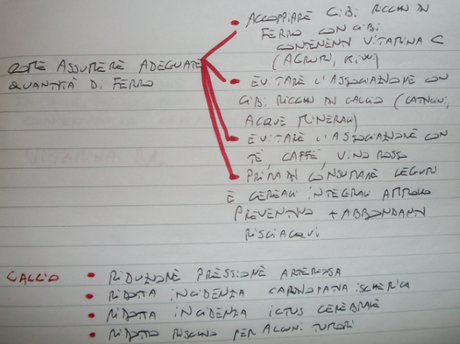 COME ASSUMERE ADEGUATE
QUANTITÀ DI FERRO
• ACCOPPIARE CIBI RICCHI DI
FERRO CON CIBI
CONTENENTI VITAMINA C
(AGRUMI, KIWI)
• EVITARE L'ASSOCIAZIONE CON
CIBI RICCHI DI CALCIO (LATTICINI,
ACQUE MINERALI)
• EVITARE L'ASSOCIAZIONE CON
TÈ, CAFFÈ, VINO ROSSO
• PRIMA DI CONSUMARE LEGUMI
E CEREALI INTEGRALI AMMOLLO
PREVENTIVO + ABBONDANTI
RISCIACQUI
CALCIO • RIDUZIONE PRESSIONE ARTERIOSA
• RIDOTTA INCIDENZA CARDIOPATIA ISCHEMICA
• RIDOTTA INCIDENZA ICTUS CEREBRALE
• RIDOTTO RISCHIO PER ALCUNI TUMORI